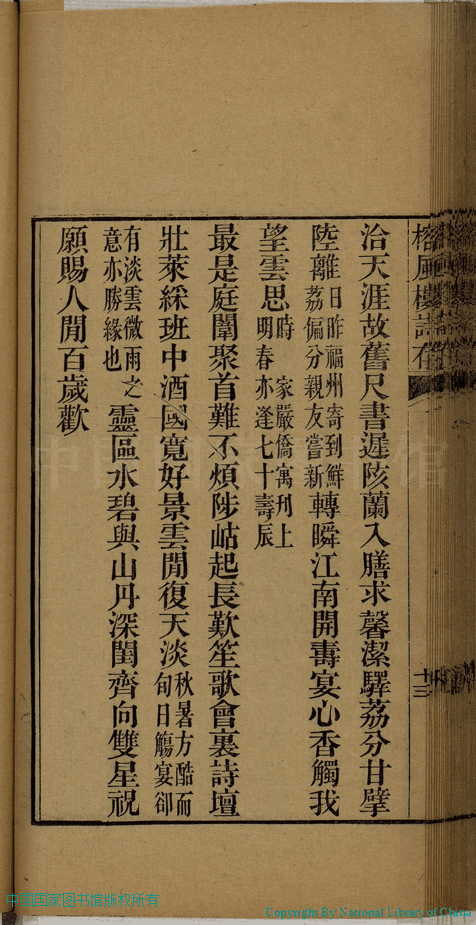 榕風樓詩存
十三
洽天涯故舊尺書遲陔蘭入膳求馨潔驛荔分甘擘
陸離日昨福州寄到鮮荔偏分親友嘗新轉瞬江南開壽宴心香觸我
望雲思時家嚴僑寓刊上明春亦逢七十壽辰
最是庭闈聚首難不煩陟岵起長歎笙歌會裏詩壇
壯萊綵班中酒國寬好景雲閒復天淡秋暑方酷而旬日觴宴卻
有淡雲微雨之意亦勝緣也靈區水碧與山丹深閨齊向雙星祝
願賜人閒百歲歡
中国国家图书馆版权所有
Copyright By National Library of China